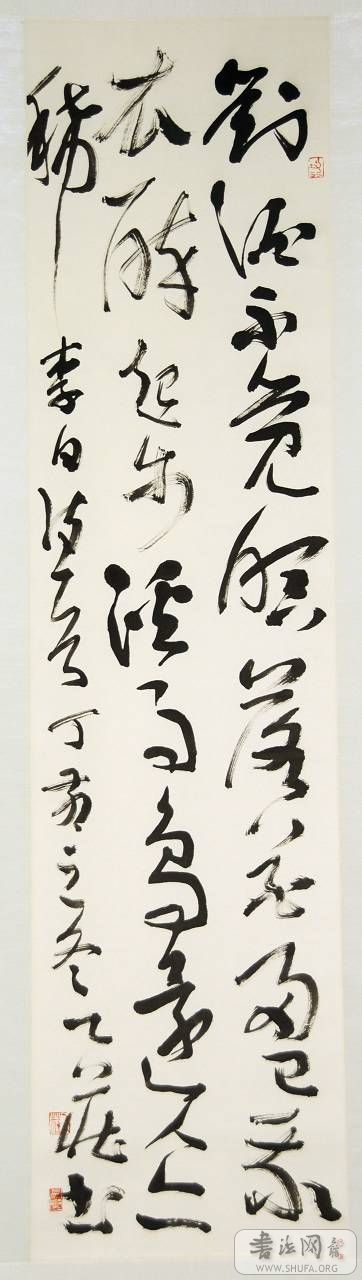 對酒不覺暝落花盈我
衣醉起步溪月鳥還人亦
稀 李白詩一首 丁亥之冬 書
書法网
WWW.SHUFA.ORG